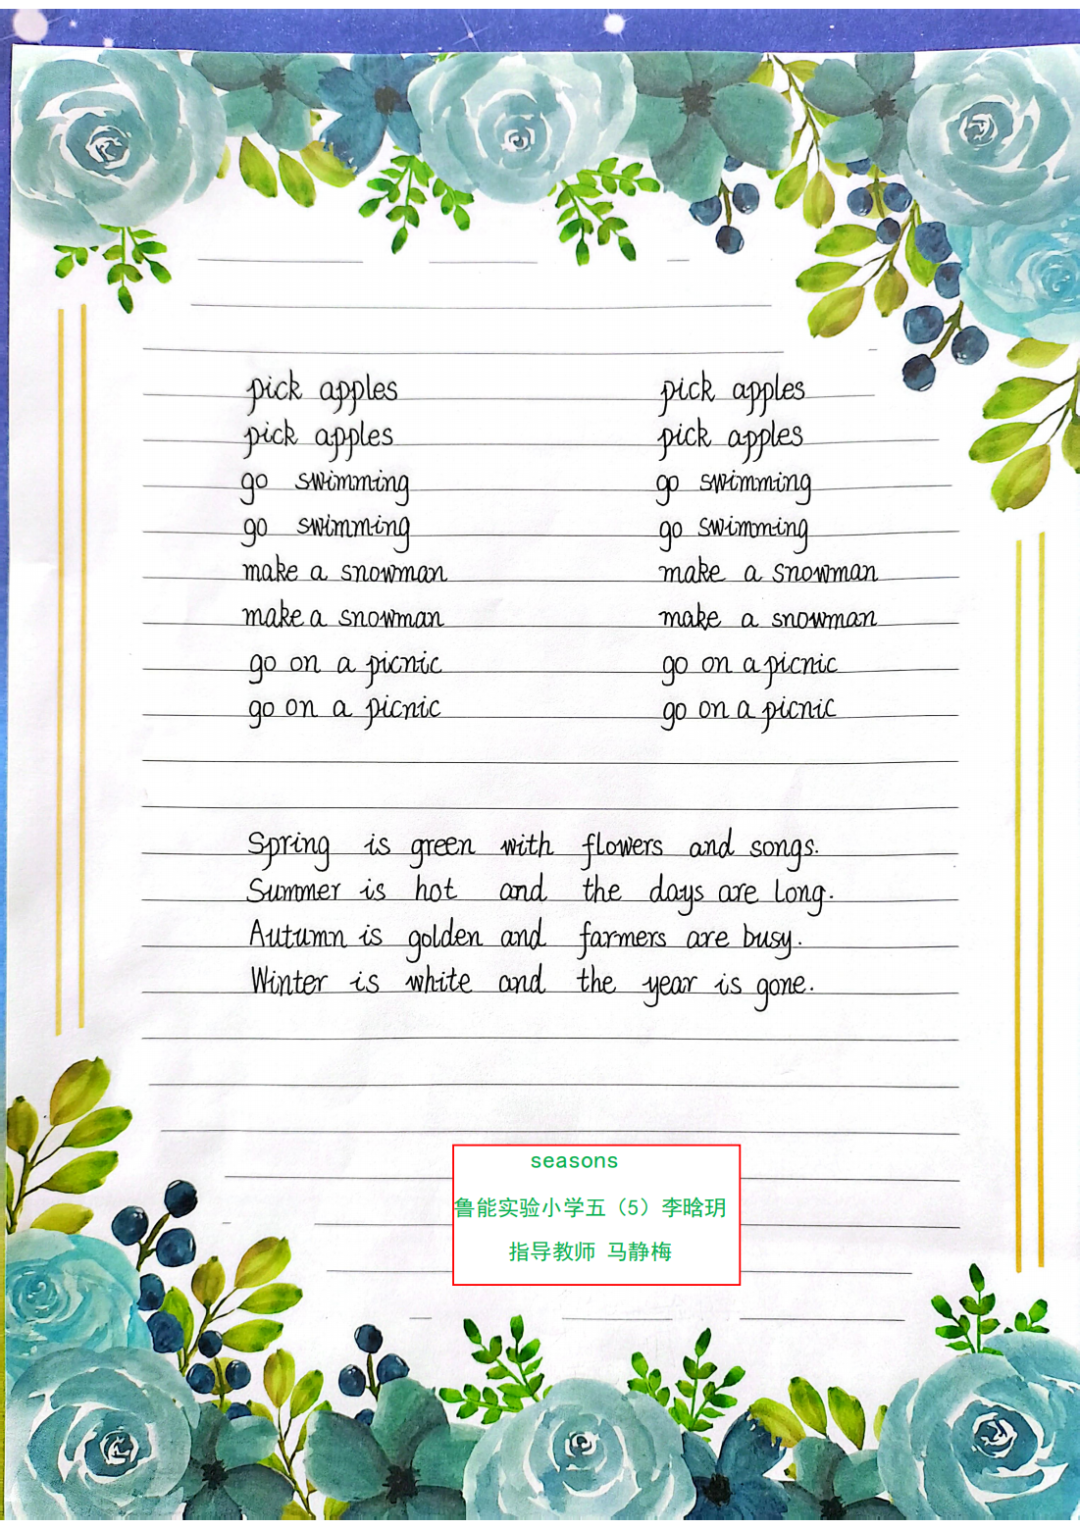 pick apples pick apples
pick apples pick apples
go swimming go swimming
go swimming go swimming
make a snowman make a snowman
make a snowman make a snowman
go on a picnic go on a picnic
go on a picnic go on a picnic
Spring is green with flowers and songs.
Summer is hot and the days are long.
Autumn is golden and farmers are busy.
Winter is white and the year is gone.
seasons
鲁能实验小学五（5）李晗玥
指导教师 马静梅